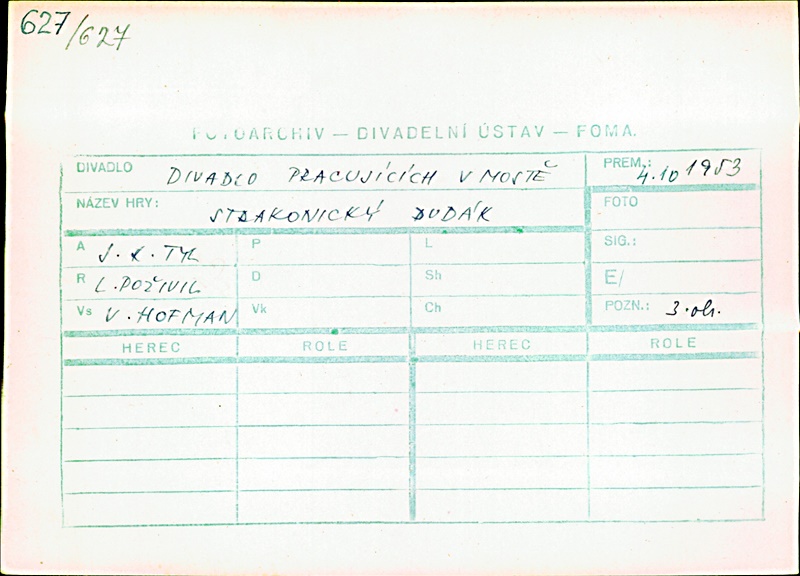 627/627
FOTOARCHIV — DIVADELNÍ ÚSTAV — FOMA.
DIVADLO DIVADLO PRACUJÍCÍCH V MOSTĚ PREM.: 4.10 1953
NÁZEV HRY: STRAKONICKÝ DUDÁK FOTO
A J. K. TYL P L SIG.:
R L. POŽIVIL D Sh E/
Vs V. HOFMAN Vk Ch POZN.: 3. obr.
HEREC ROLE HEREC ROLE